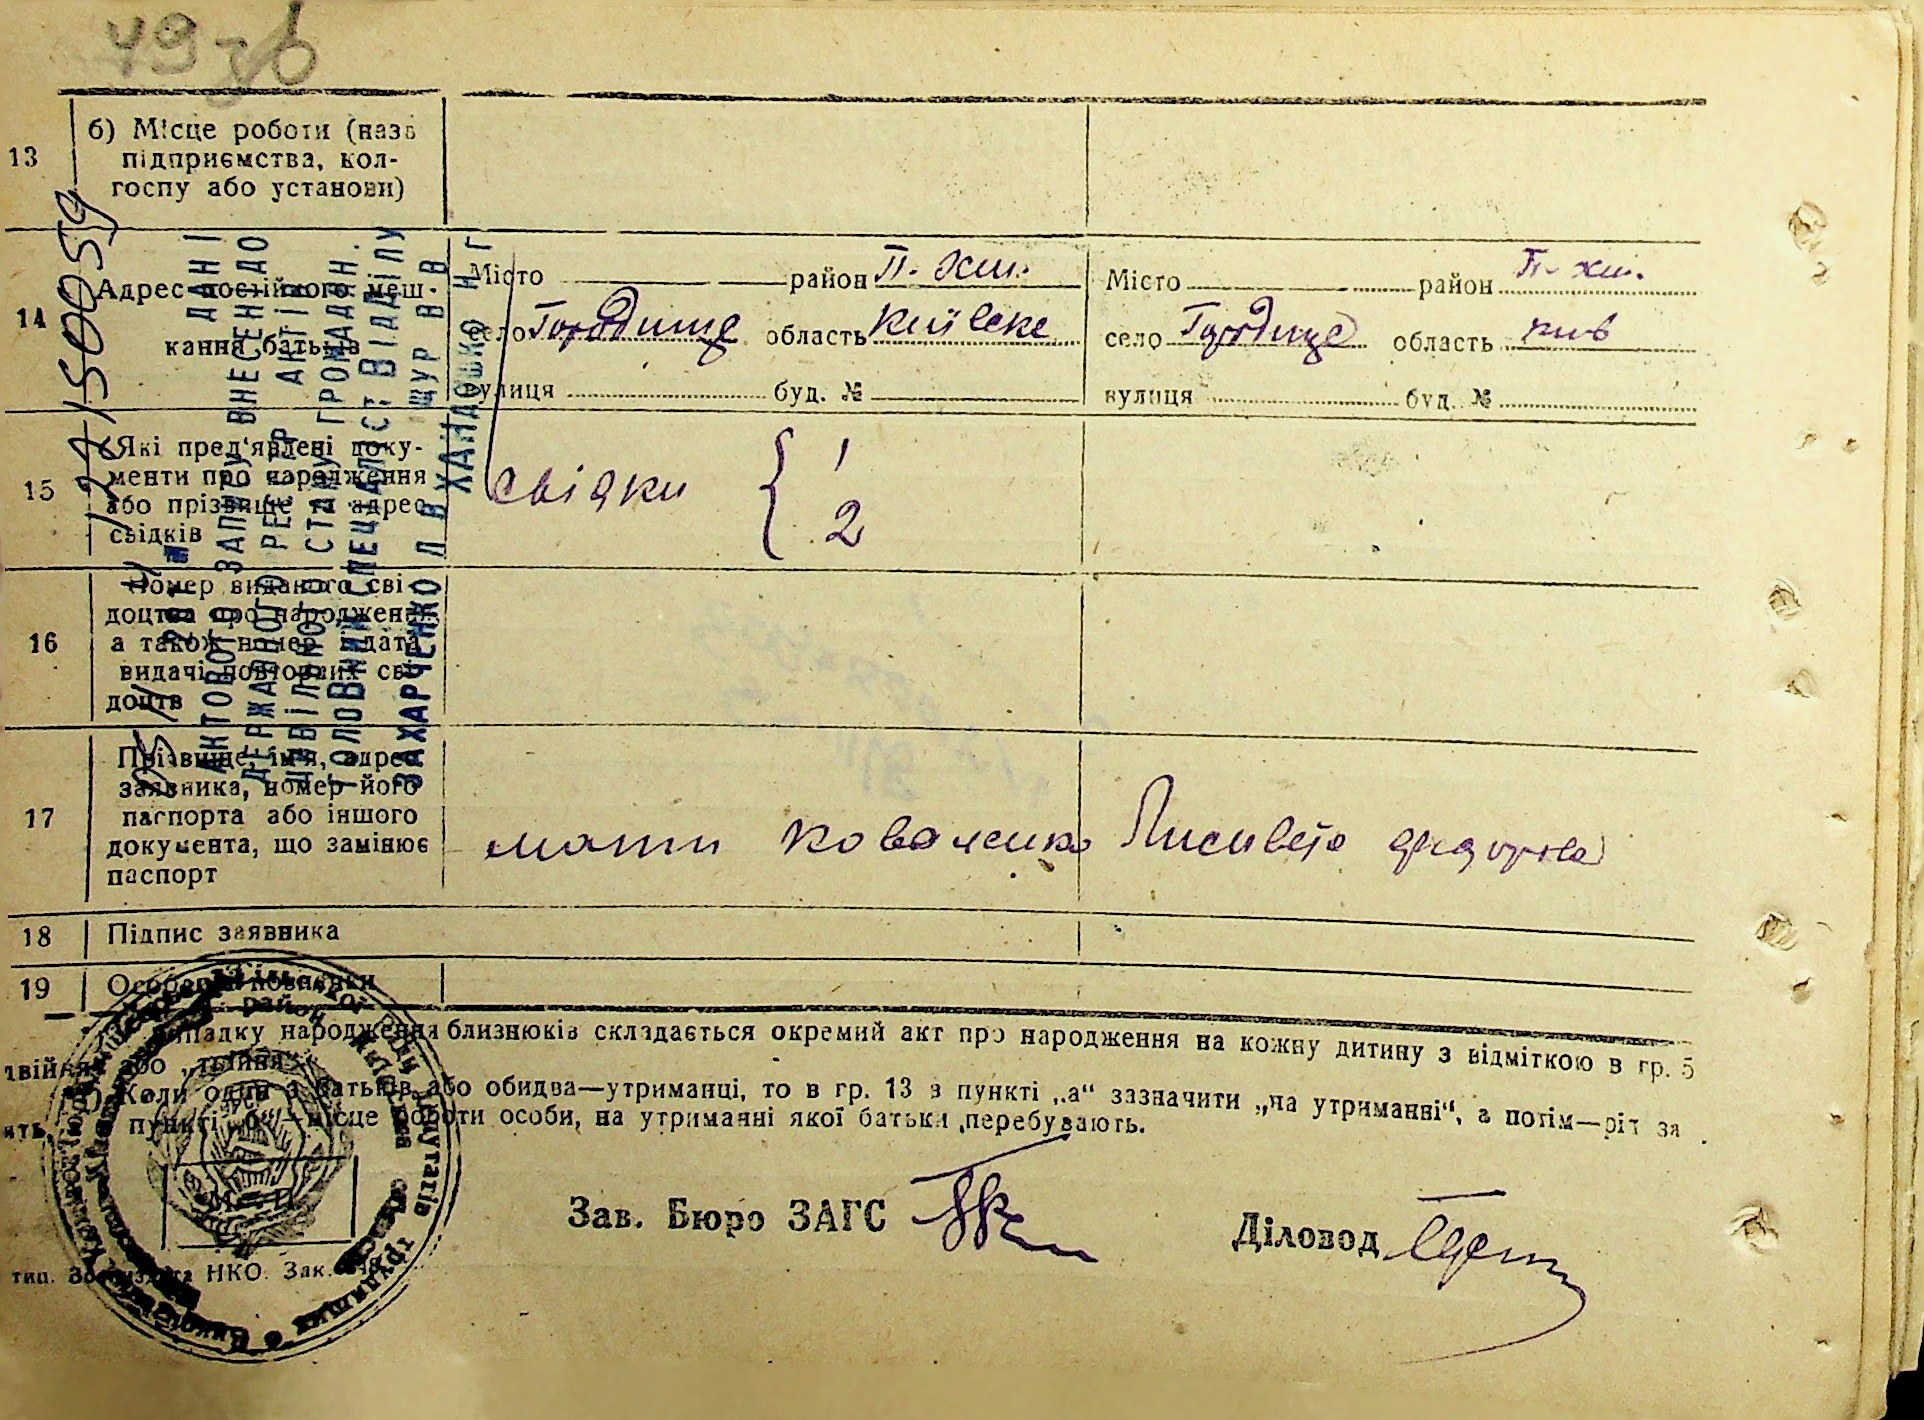 49 зв
13 б) Місце роботи (назв
підприємства, кол-
госпу або установи)
14 Адрес постійного меш-
кання батьків
Місто район П. Хм.
село Городище область Київске
вулиця буд. №
Місто район П. Хм.
село Городище область Київ
вулиця буд. №
15 Які пред'явлені доку-
менти про народження
або прізвище та адрес
свідків
свідки { 1
2
16 Номер виданого сві-
доцтва про народження
а також номер і дата
видачі повторних сві-
доцтв
17 Прізвище, ім'я, адрес
заявника, номер його
паспорта або іншого
документа, що замінює
паспорт
мати Коваленко Лисивета
18 Підпис заявника
19 Особерні
випадку народження близнюків складається окремий акт про народження на кожну дитину з відміткою в гр. 5
або „трійня“.
Коли один з батьків або обидва—утриманці, то в гр. 13 в пункті „а“ зазначити „на утриманні“, а потім—
пункті „б“—місце роботи особи, на утриманні якої батьки перебувають.
М. П.
Зав. Бюро ЗАГС
Діловод
НКО. Зак.
1500059
ДАНІ
АКТОВОГО ЗАПИСУ ВНЕСЕНІ ДО
ДЕРЖАВНОГО РЕЄСТР АКТІВ
ЦИВІЛЬНОГО СТАНУ ГРОМАДЯН.
ГОЛОВНИЙ СПЕЦІАЛІСТ ВІДДІЛУ
ЗАХАРЧЕНКО Л В ЩУР В В
ХАНДОЖКО Н Г